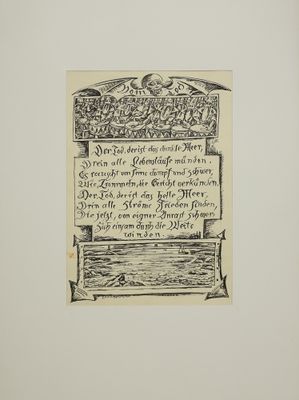 Dem Tod
Der Tod, der ist das dunkle Meer,
Drein alle Lebensläufe münden.
Es rauscht von ferne dumpf und schwer,
Wie Trommeln, die Gericht verkünden.
Der Tod, der ist das helle Meer,
Drein alle Ströme Frieden finden,
Die jetzt, von eigner Unrast schwer,
Sich einsam durch die Weite
winden.